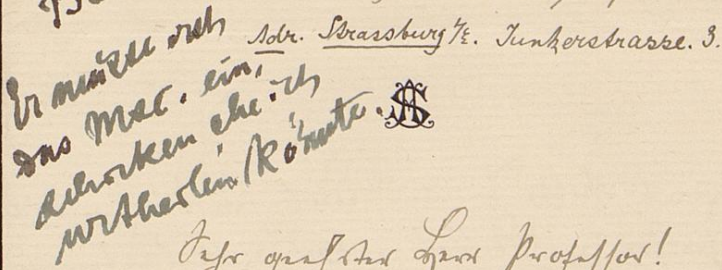 Adr. Strassburg i/E. Junkerstrasse. 3.
Er müsste
das Msc. ein
schicken ehe ich
urtheilen könnte.
AS
Sehr geehrter Herr Professor!